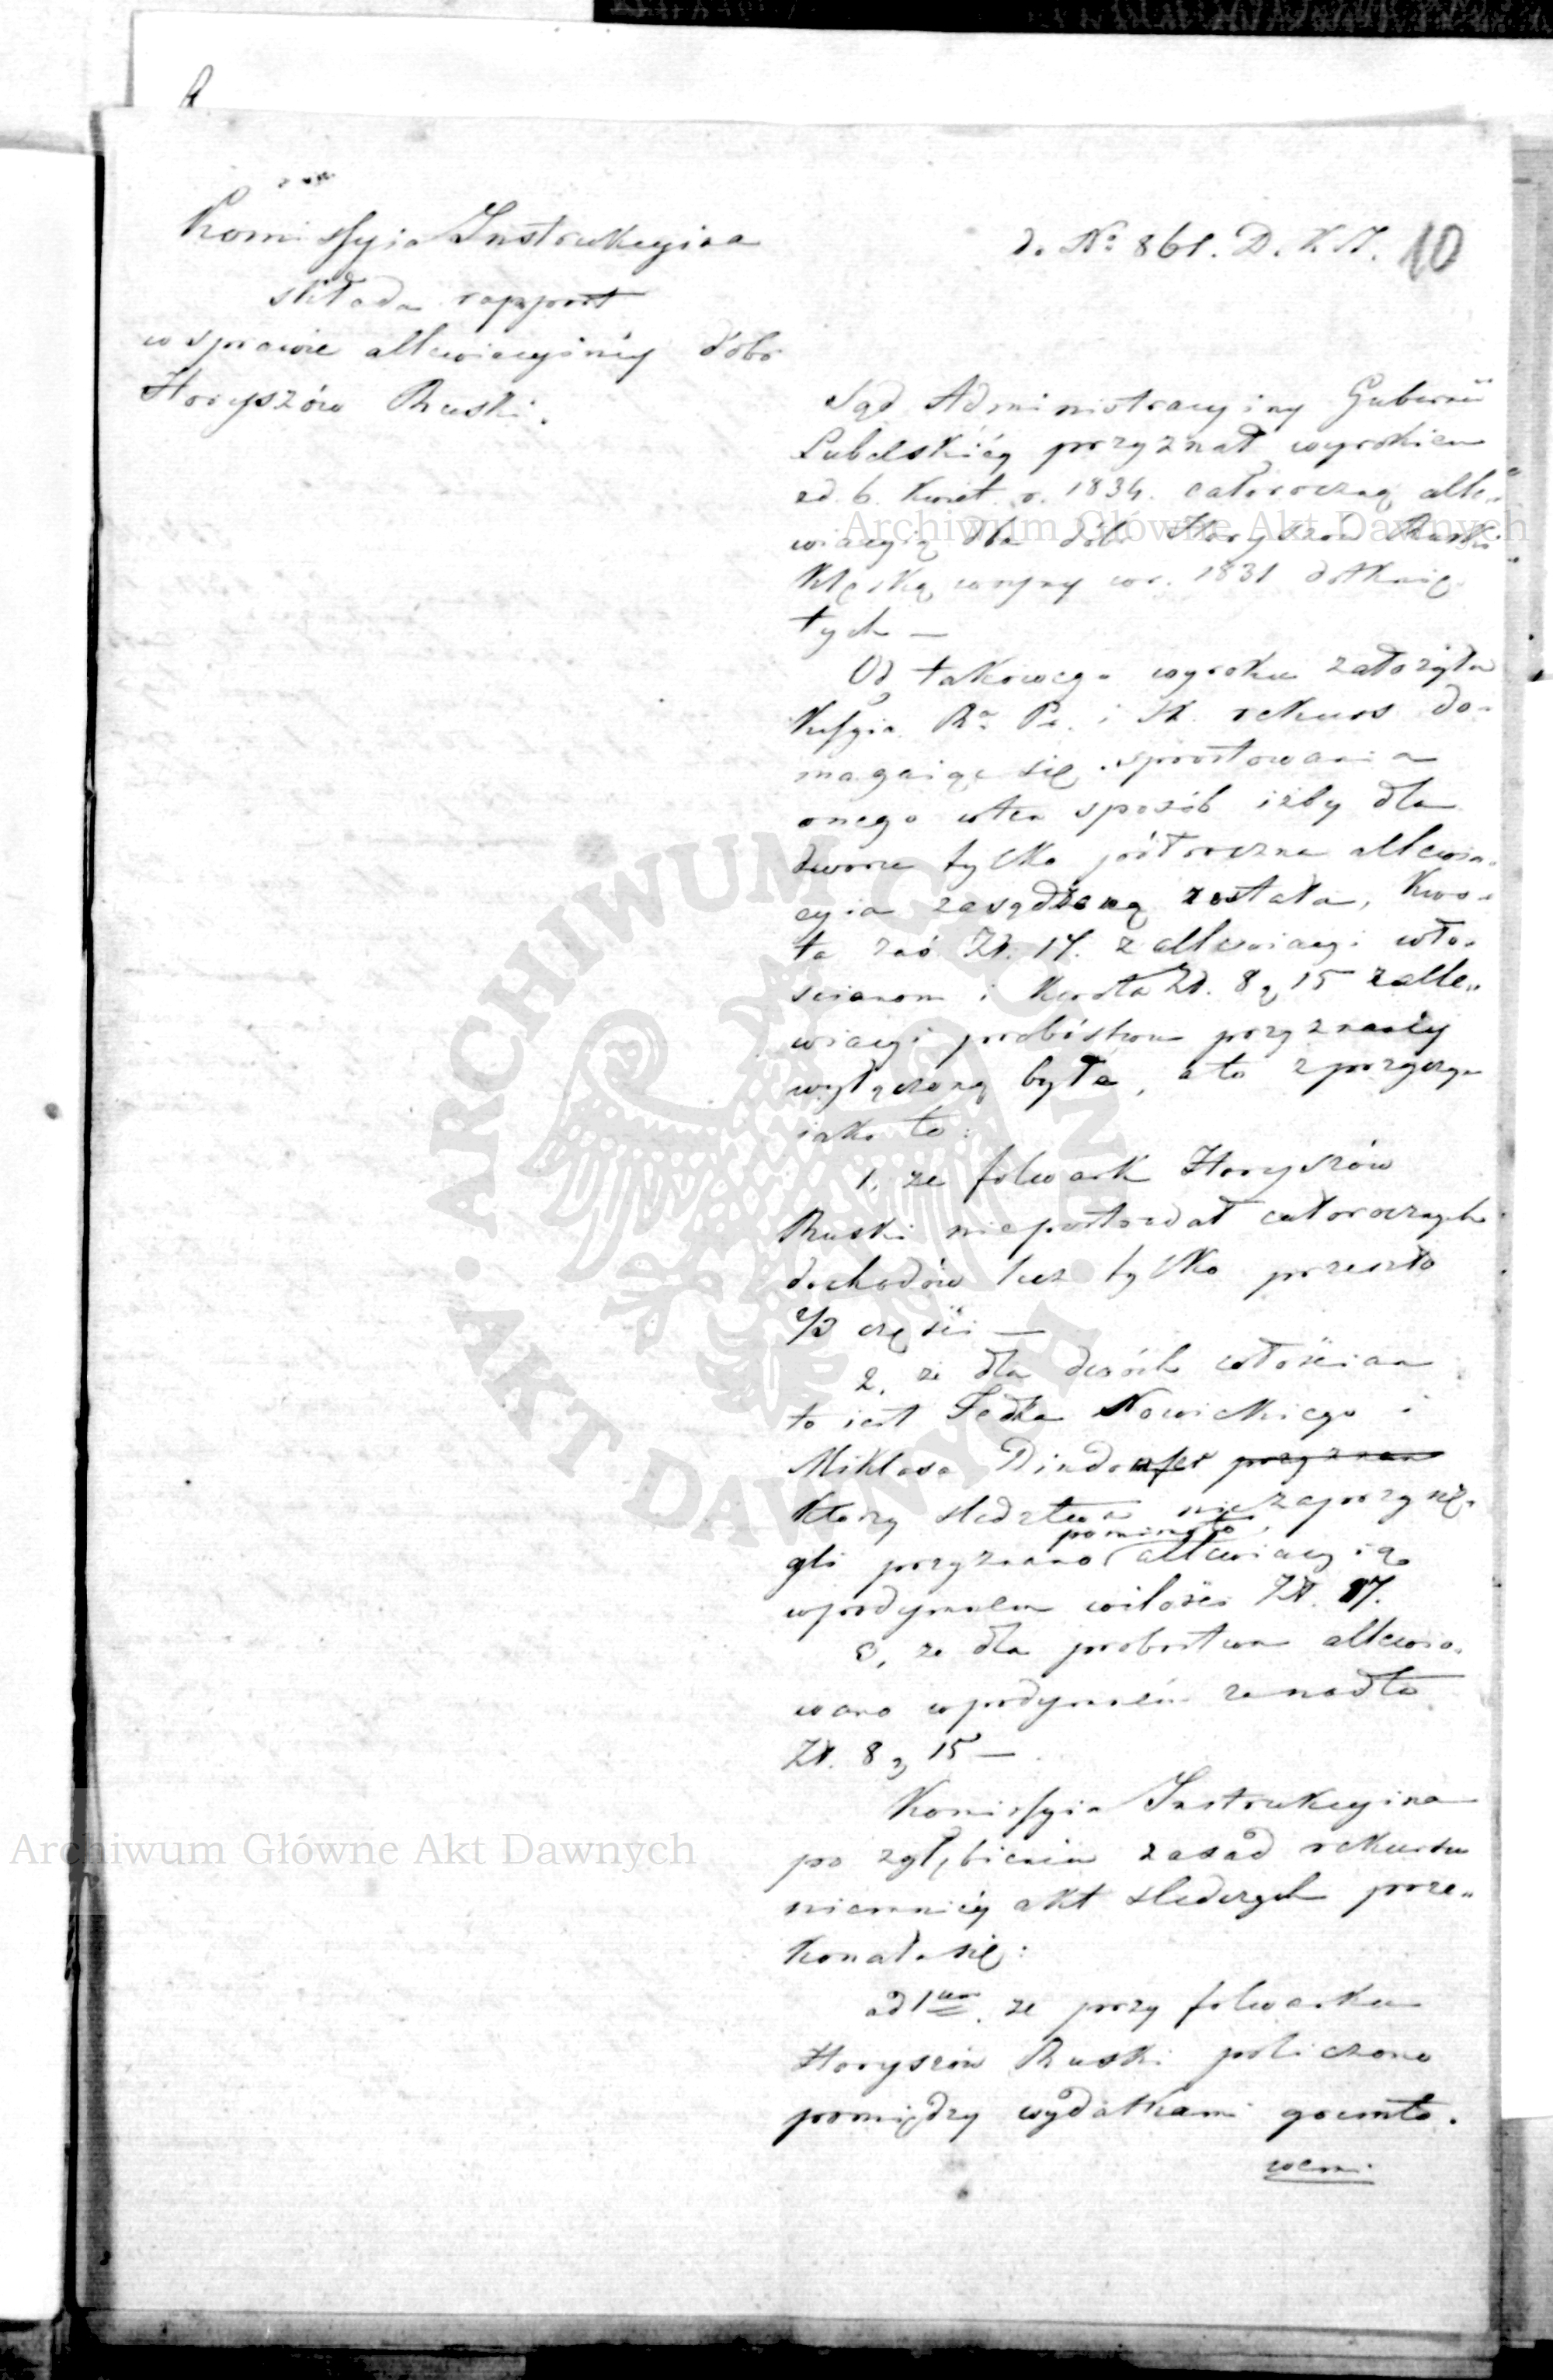 Komissyia Instrukcyina
składa rapport
w sprawie allewiacyinéy dóbr
Horyszów Ruski.
d. No 861. D. K. I. 10
Sąd Administracyiny Gubernii
Lubelskiéy przyznał wyrokiem
z d. 6. Kwiet. r. 1834. całoroczną alle„
wiacyią dla dóbr Horyszów Ruski
klęską wojny w r. 1831 dotknię„
tych —
Od takowego wyroku założyła
Kssyia Rz. Pr. i Sk. rekurs do„
magaiąc się sprostowania
onego w ten sposób iżby dla
dworu tylko półroczna allewia„
cyia zasądzoną została, kwo„
ta zaś Zł. 17. z allewiacyi wło„
ścianom i kwota Zł. 8 g 15 z alle„
wiacyi probóstwu przyznanéy
wyłączoną była, a to z przyczyn
iako to:
1, że folwark Horyszów
Ruski niepostradał całorocznych
dochodów lecz tylko przeszło
2/3 części —
2, że dla dwóch włościan
to iest Fedka Nowickiego i
Miklosa przyznan
którzy śledztwa niezaprzysię„
gli przyznano pomimo to allewiacyią
w podymném w ilości Zł. 17.
3, że dla probostwa allewio„
wano w podymném zanadto
Zł. 8 g 15 —
Komissyia Instrukcyina
po zgłębieniu zasad rekursu
niemniéy akt śledczych prze„
konała się:
ad 1um. że przy folwarku
Horyszów Ruski policzono
pomiędzy wydatkami grunto„
wemi
Archiwum Główne Akt Dawnych
Archiwum Główne Akt Dawnych